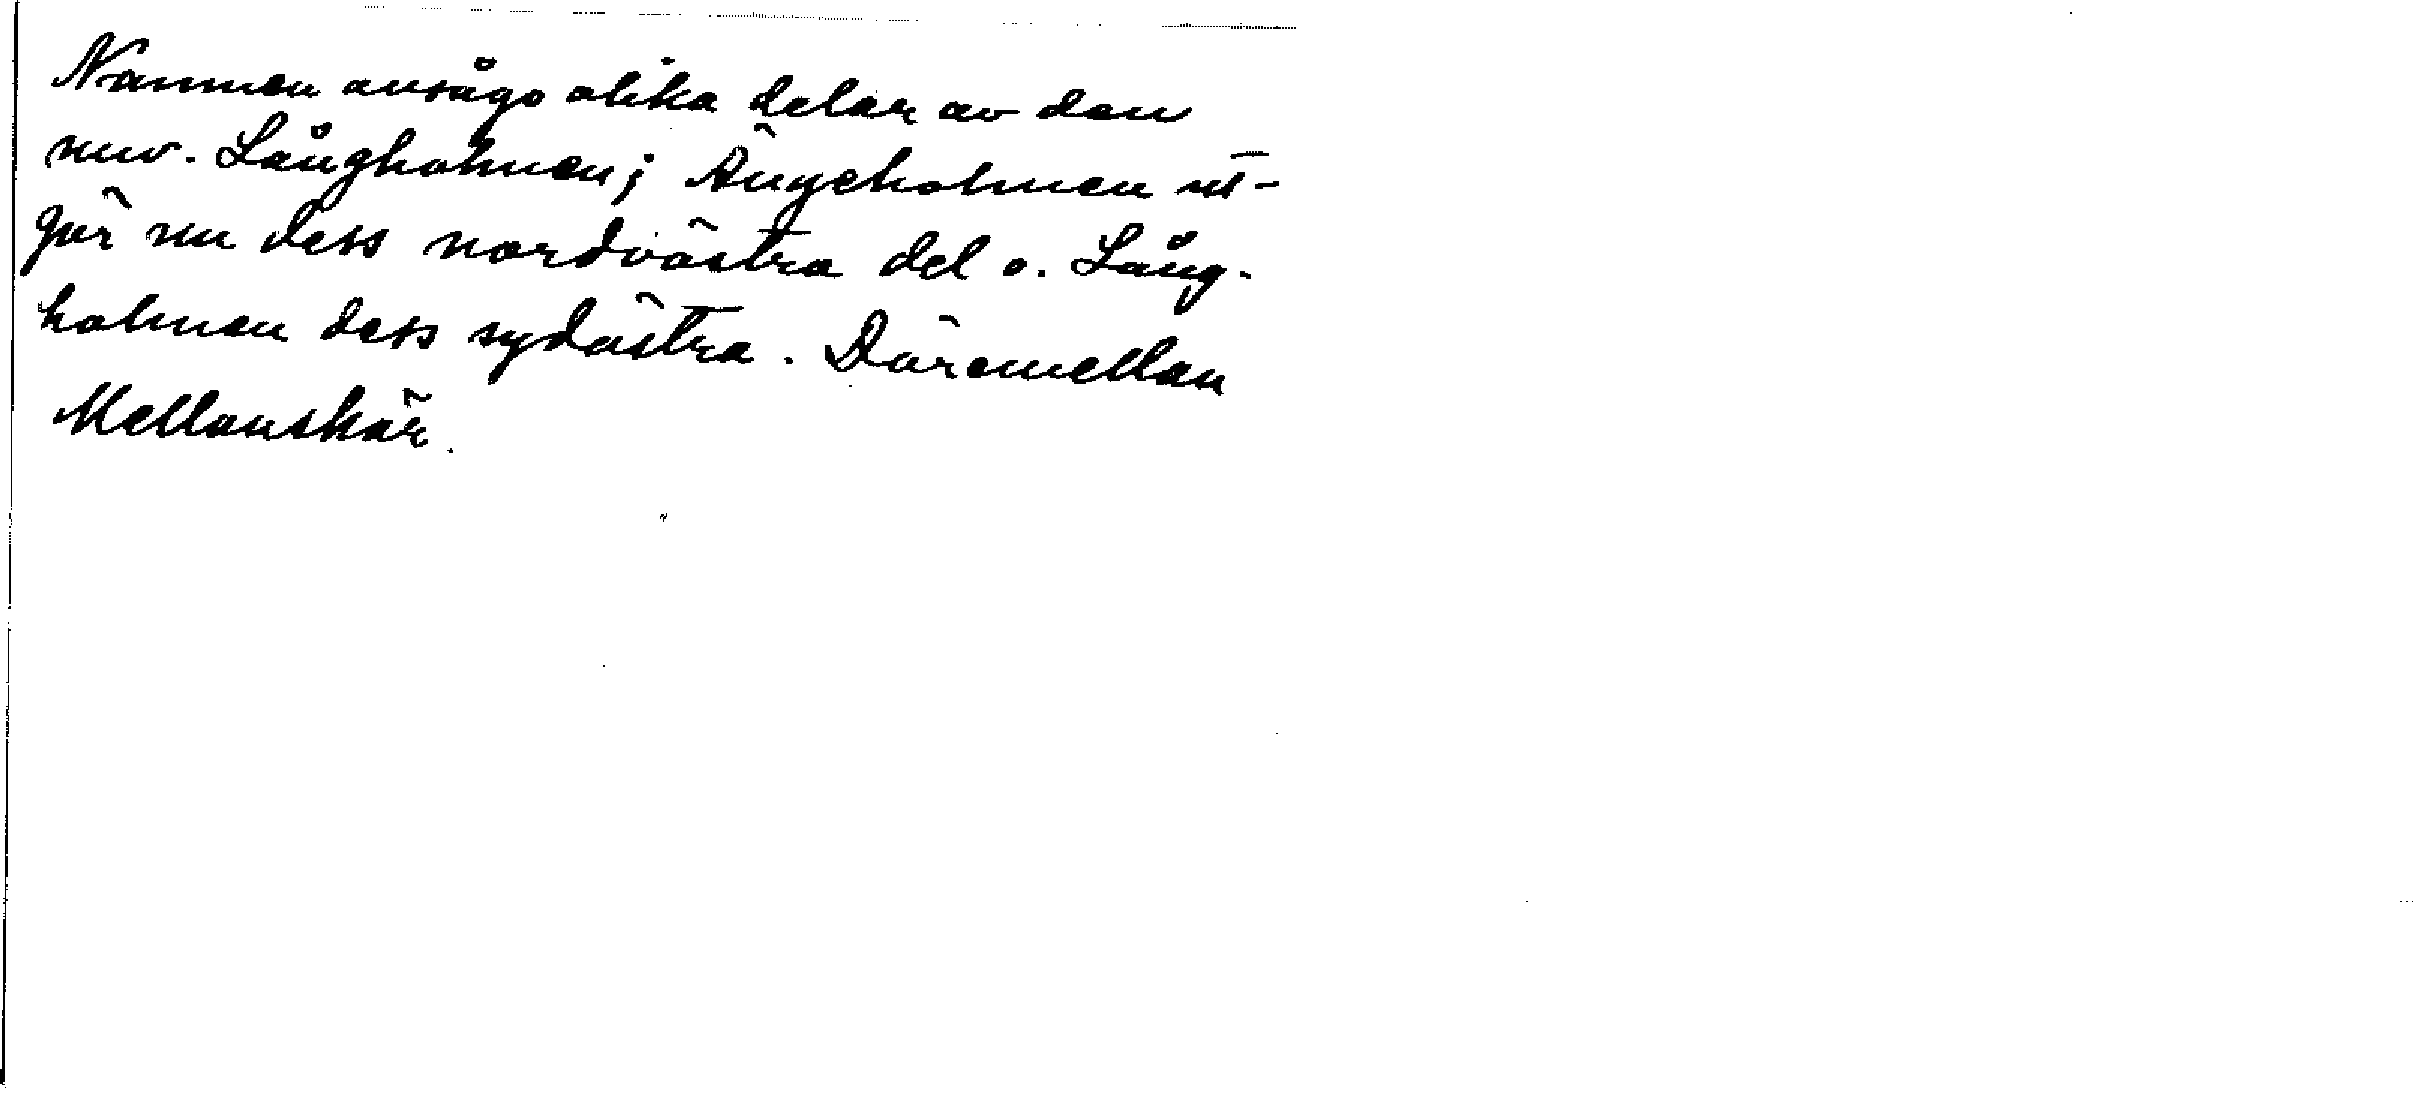 Namnen ansågo olika delar av den
nuv. Långholmen; Ängeholmen ut-
gör nu dess nordvästra del o. Lång-
holmen dess sydöstra. Däremellan
Mellanskär.